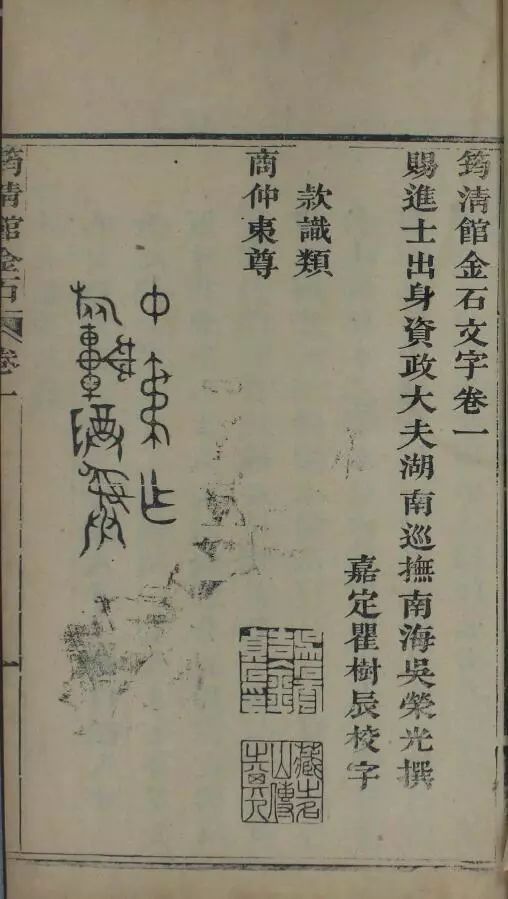 筠清館金石文字卷一
賜進士出身資政大夫湖南巡撫南海吳榮光撰
嘉定瞿樹辰校字
款識類
商仲東尊
筠清館金石 卷一
一